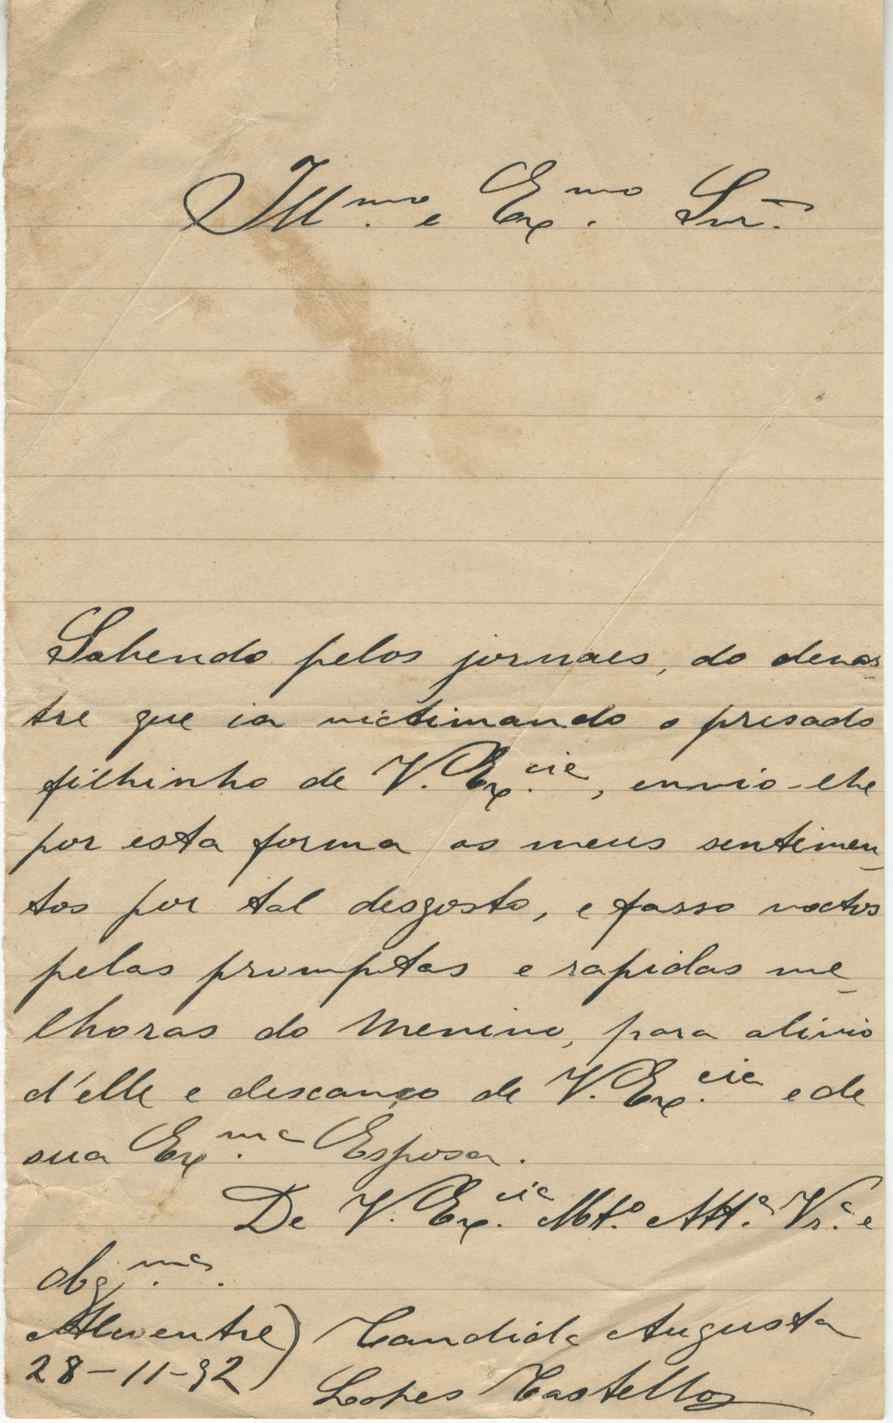 Ill.mo e Ex.mo Snr.
Sabendo pelos jornaes, do desas-
tre que ia victimando o presado
filhinho de V. Ex.cia, envio-lhe
por esta forma os meus sentimen-
tos por tal desgosto, e fasso voctos
pelas promptas e rapidas me-
lhoras do Menino, para alivio
d'elle e descanço de V. Ex.cia e de
sua Ex.ma Esposa.
De V. Ex.cia Mt.o Att.a Vr.a e
obg.ma.
Alcoentre) Candida Augusta
28-11-92) Lopes Castello